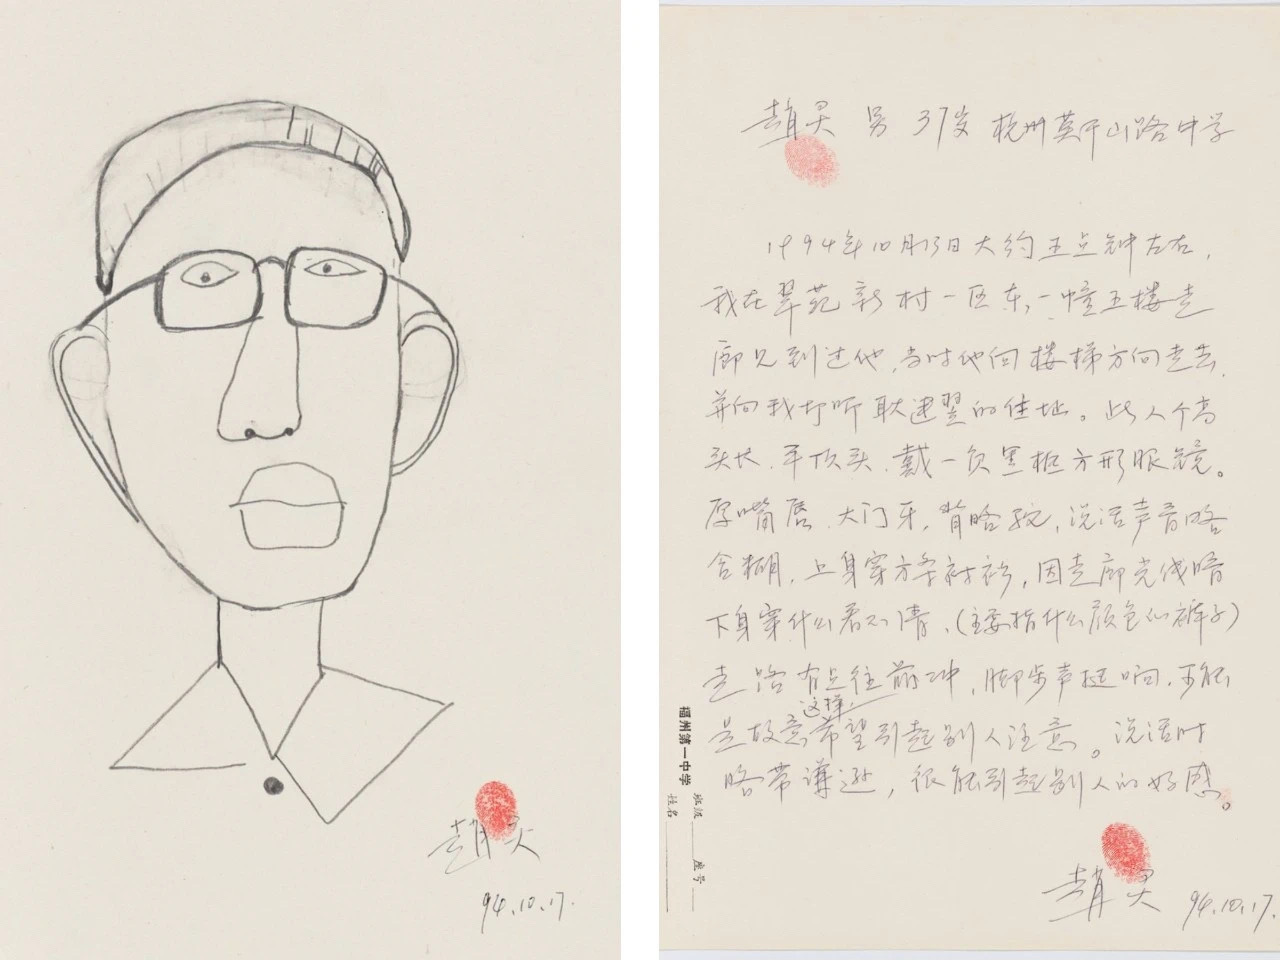 94.10.17.
男 37岁 杭州莫干山路中学
1994年10月13日大约五点钟左右,
我在翠苑新村一区东,一幢五楼走
廊见到过他,当时他向楼梯方向走去,
并向我打听耿建翌的住址。此人个高
头长,平顶头,戴一负黑框方形眼镜。
厚嘴唇,大门牙,背略驼,说话声音略
含糊,上身穿方条衬衫,因走廊光线暗
下身穿什么看不清,(主要指什么颜色的裤子)
走路有点往前冲,脚步声挺响,可能
这样,
是故意希望引起别人注意。说话时
略带谦逊,很能引起别人的好感。
94.10.17.
福州第一中学
班级 座号
姓名